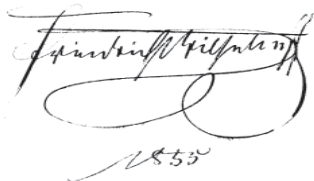 Friedrich Wilhelm
1855